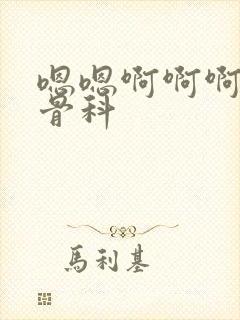 嗯嗯啊啊啊
骨科
馬利基